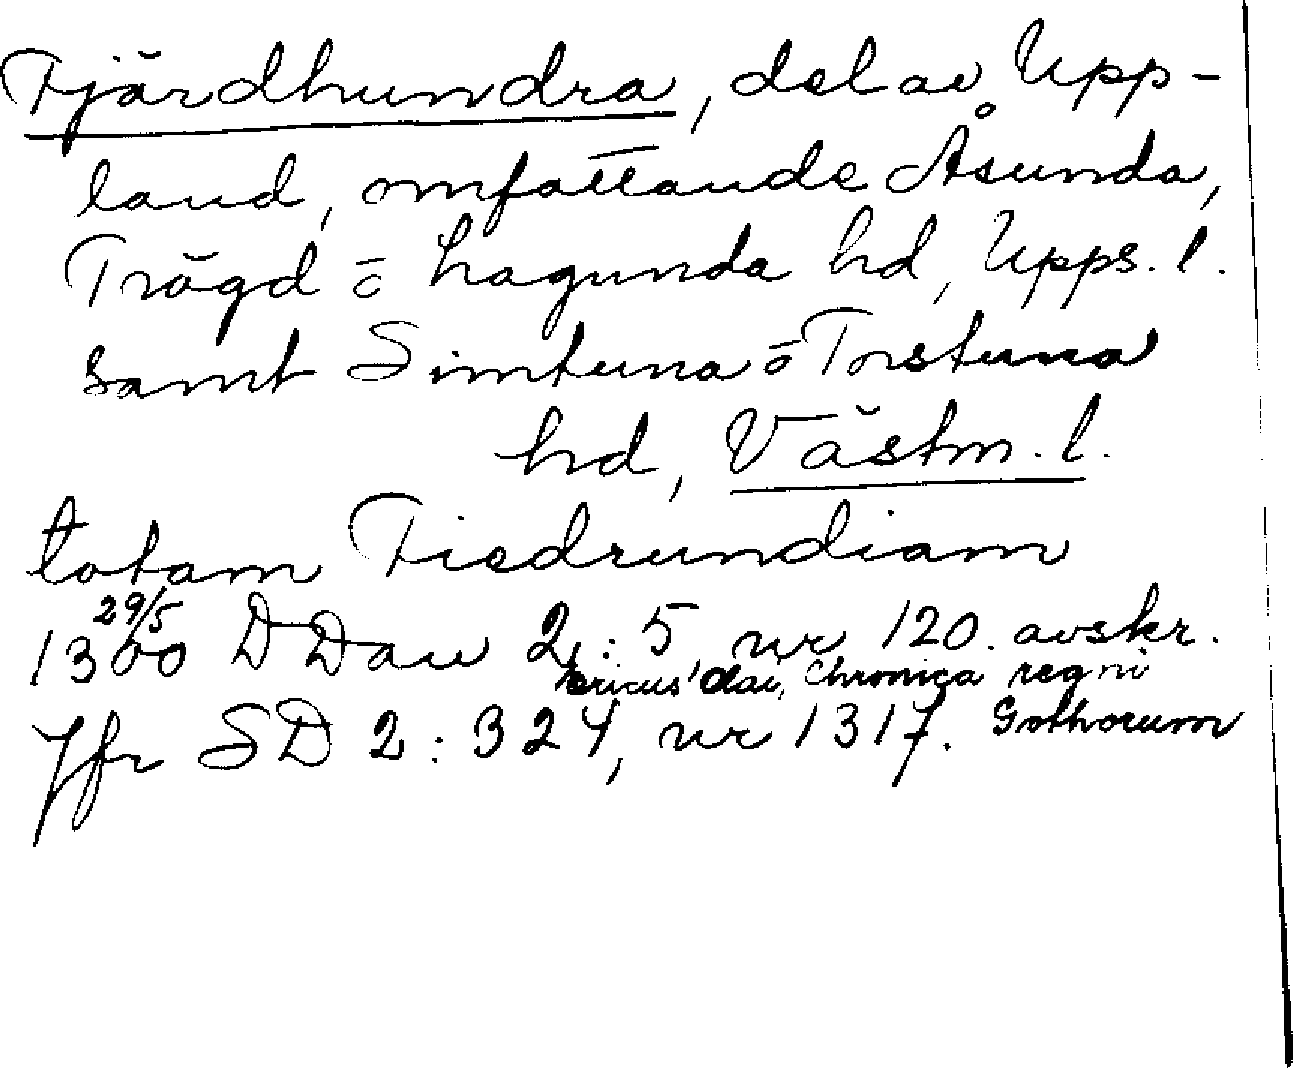 Fjärdhundra, del av Upp-
land, omfattande Åsunda,
Trögd o Lagunda hd, Upps. l.
samt Simtuna o Torstuna
hd, Västm. l.
totam Fiedrundiam
1300 29/5 DDan 2: 5 nr 120. avskr.
Ericus Olai, Chronica regni
Jfr SD 2: 324, nr 1317. Gothorum